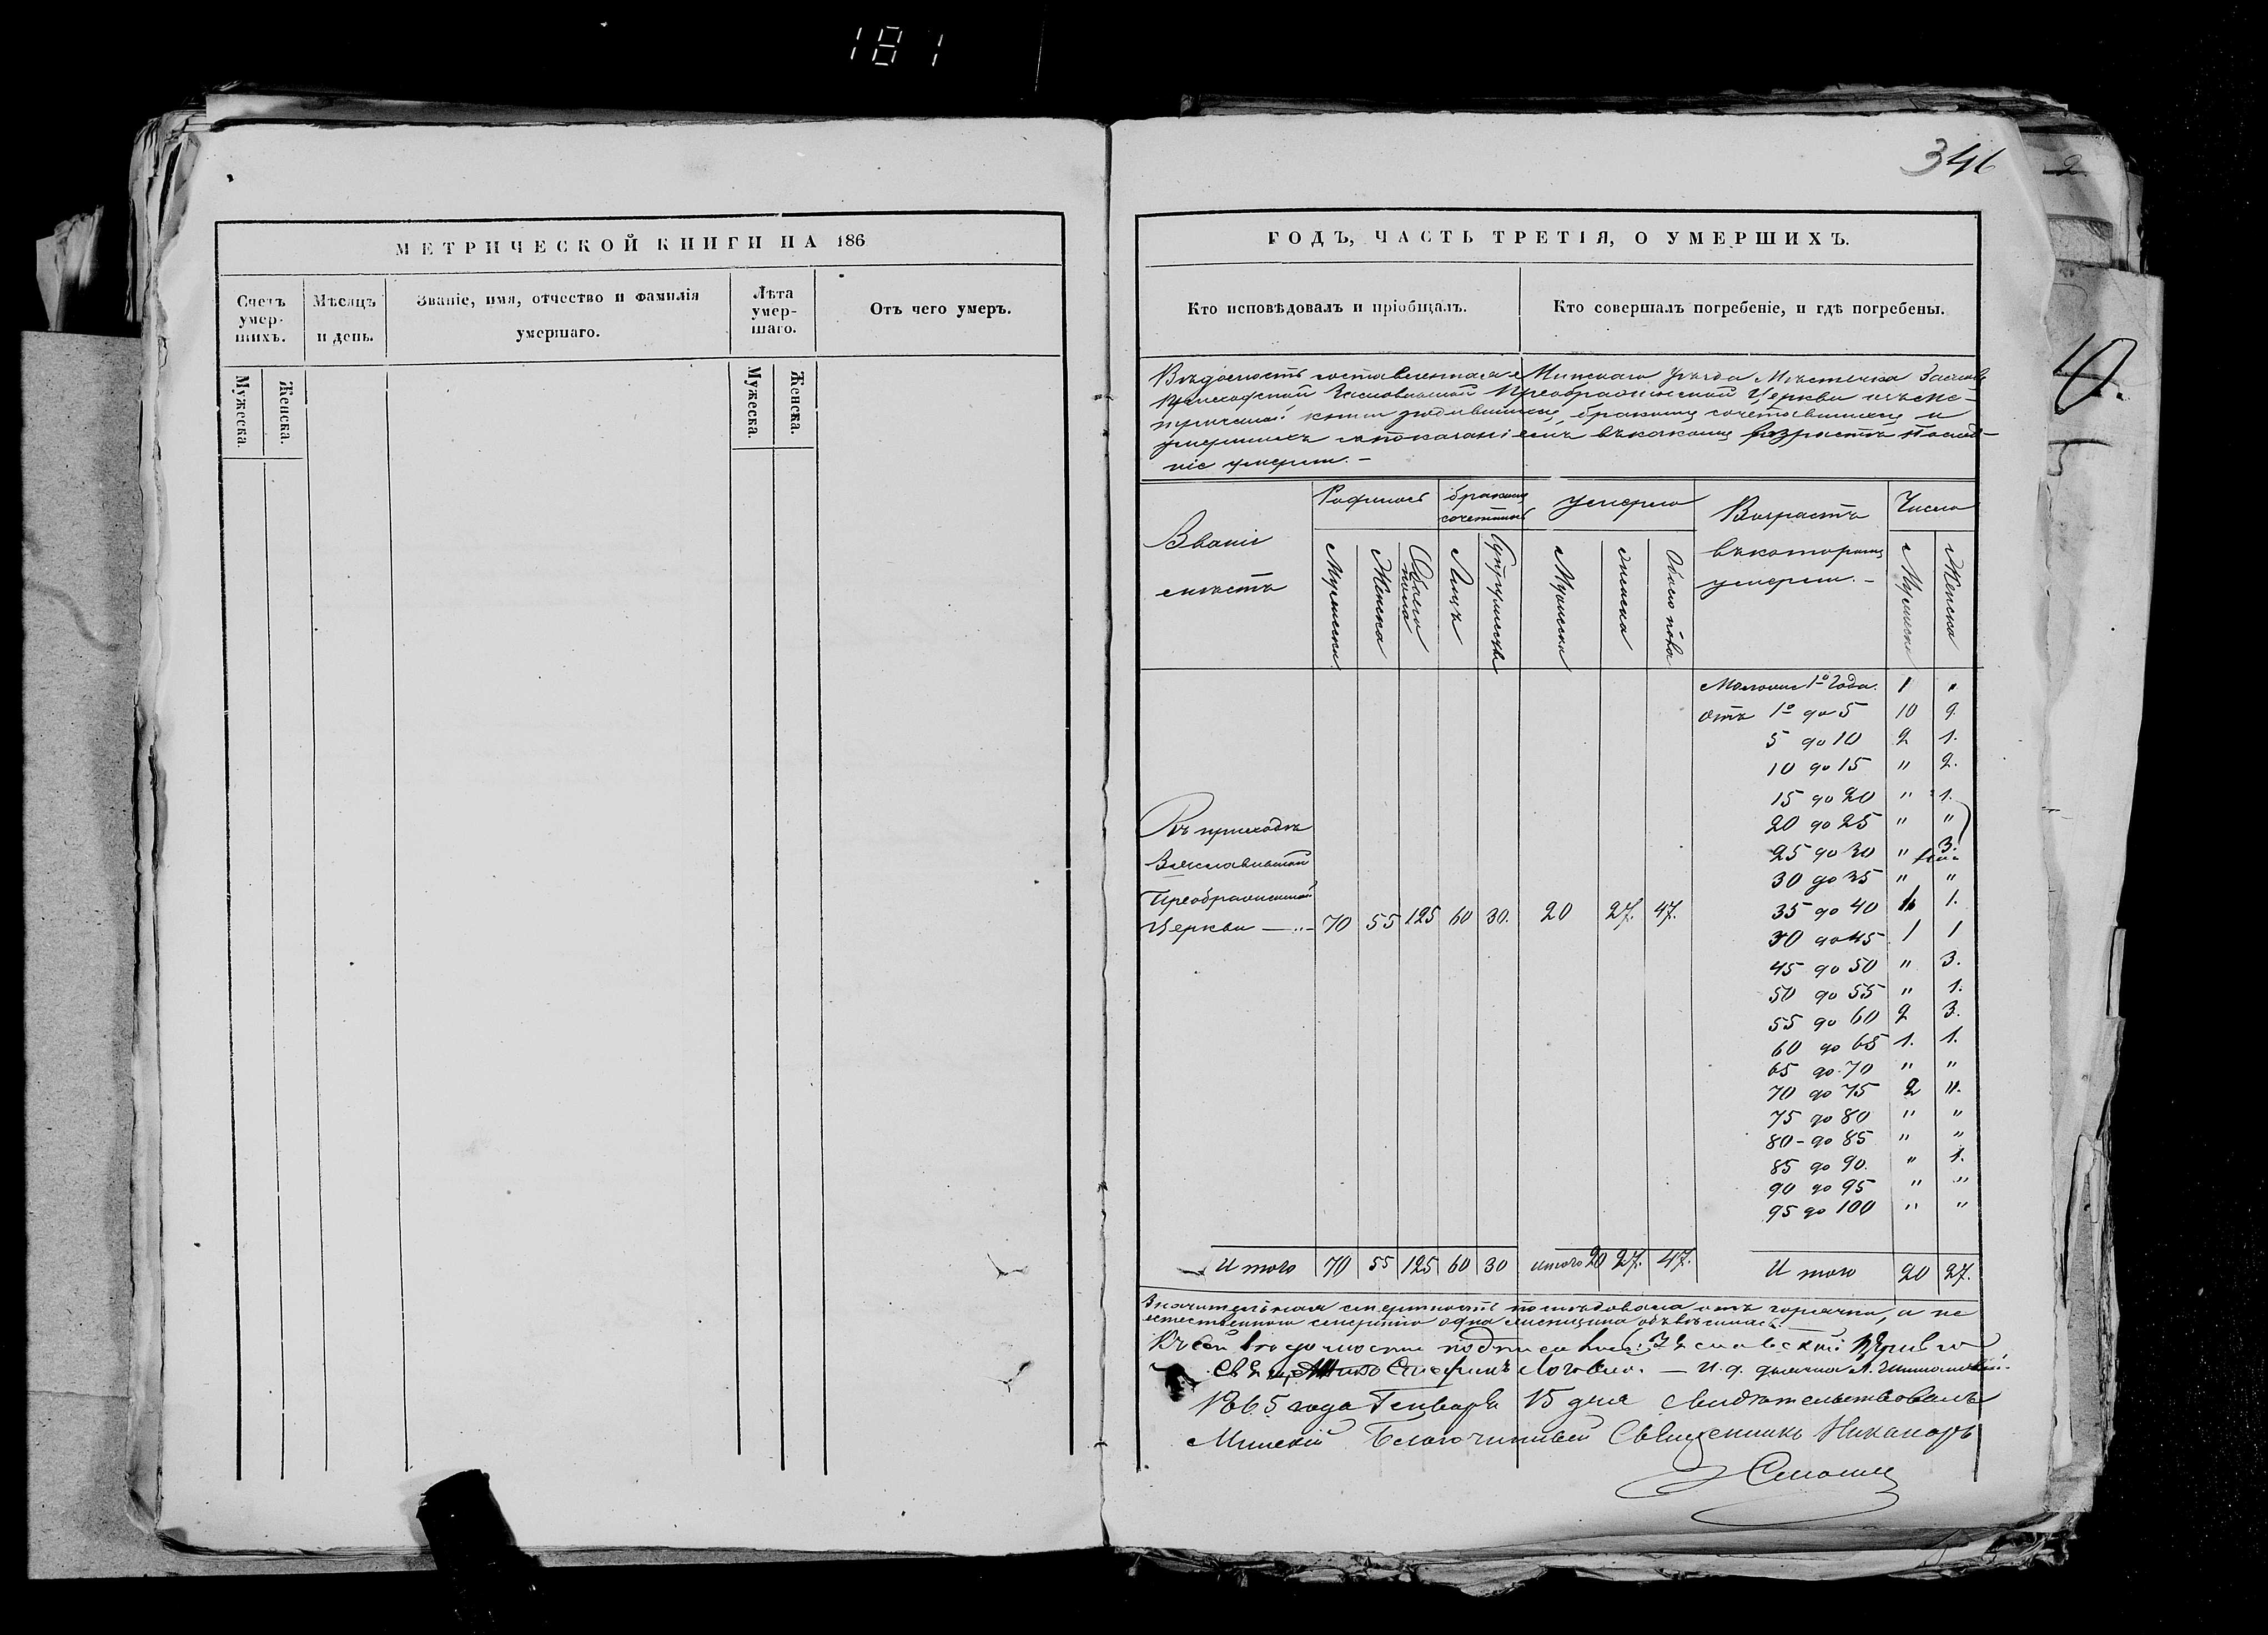 181
346
МЕТРИЧЕСКОЙ КНИГИ НА 186
Счетъ умер-шихъ.
Мѣсяцъ и день.
Званіе, имя, отчество и фамилія умершаго.
Лѣта умер-шаго.
Отъ чего умеръ.
Мужеска.
Женска.
Мужеска.
Женска.
ГОДЪ, ЧАСТЬ ТРЕТІЯ, О УМЕРШИХЪ.
Кто исповѣдовалъ и пріобщалъ.
Кто совершалъ погребеніе, и гдѣ погребены.
Вѣдомость составленная Минскаго уѣзда Мѣстечка
Преображенской Церкви изъ ме-
трической книги родившимся, бракомъ сочетавшимся и
умершимъ съ показаніемъ въ какомъ возрастѣ послѣд-
ніе умерли. –
Званіе
мѣстъ
Родилось
бракомъ
сочеталось
умерло
Возрастъ
въ которомъ
умерли. –
Число
Мужеска
Женска
Обоего пола
Лицъ
Супружествъ
Мужеска
Женска
Обоего пола
Мужеска
Женска
Моложе 1º года. 1 "
Отъ 1º до 5 10 9.
5 до 10 2 1.
10 до 15 " 2.
15 до 20 " 1.
20 до 25 " "
25 до 30 " 3.
30 до 35 " "
35 до 40 1 1.
до 45 1 1
45 до 50 " 3.
50 до 55 " 1.
55 до 60 2 3.
60 до 65 1. 1.
65 до 70 " "
70 до 75 2 ".
75 до 80 " "
80 – до 85 " "
85 до 90. " 1.
90 до 95 " "
95 до 100 " "
Въ приходѣ
Заславльской
Преображенской
Церкви — „ — 70 55 125 60 30. 20 27. 47.
Итого 70 55 125 60 30 Итого 20 27. 47. Итого 20 27.
Значительная смертность послѣдовала отъ горячки, а не
естественною смертію одна женщина
Къ сей вѣдомости подписались:
И. д. дьячка
1865 года Генваря 15 дня свидѣтельствовалъ
Минскій Благочинный Священникъ Никаноръ
Смоличъ